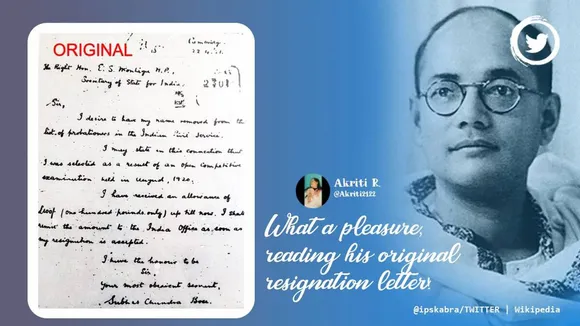 ORIGINAL
22. 4. 21.
The Right Hon. E. S. Montagu M.P.,
Secretary of State for India.
Sir,
I desire to have my name removed from the
list of probationers in the Indian Civil Service.
I may state in this connection that
I was selected as a result of an open competitive
examination held in August, 1920.
I have received an allowance of
£100/- (one hundred pounds only) up till now. I shall
remit the amount to the India Office as soon as
my resignation is accepted.
I have the honour to be
Sir,
Your most obedient servant,
Subhas Chandra Bose.
Akriti R.
@Akriti2122
What a pleasure,
reading his original
resignation letter.
@ipskabra/TWITTER | Wikipedia